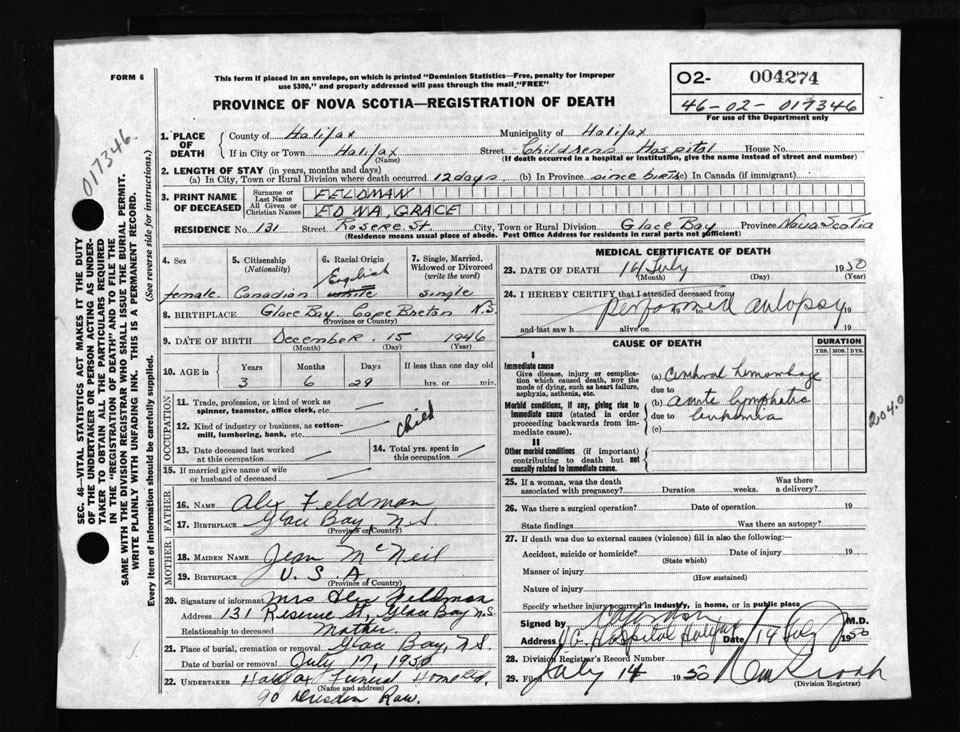 FORM 6
This form if placed in an envelope, on which is printed "Dominion Statistics—Free, penalty for improper
use $300," and properly addressed will pass through the mail "FREE"
O2- 004274
46-02-017346
For use of the Department only
PROVINCE OF NOVA SCOTIA—REGISTRATION OF DEATH
017346.
SEC. 46—VITAL STATISTICS ACT MAKES IT THE DUTY
OF THE UNDERTAKER OR PERSON ACTING AS UNDER-
TAKER TO OBTAIN ALL THE PARTICULARS REQUIRED
IN THE "REGISTRATION OF DEATH" AND TO FILE THE
SAME WITH THE DIVISION REGISTRAR WHO SHALL ISSUE THE BURIAL PERMIT.
WRITE PLAINLY WITH UNFADING INK. THIS IS A PERMANENT RECORD.
Every item of information should be carefully supplied. (See reverse side for instructions.)
1. PLACE OF DEATH
County of Halifax Municipality of Halifax
If in City or Town Halifax Street Childrens Hospital House No.
(Name) (If death occurred in a hospital or institution, give the name instead of street and number)
2. LENGTH OF STAY (in years, months and days)
(a) In City, Town or Rural Division where death occurred 12 days (b) In Province since birth (c) In Canada (if immigrant)
3. PRINT NAME OF DECEASED
Surname or Last Name FELDMAN
All Given or Christian Names EDNA, GRACE
RESIDENCE No. 131 Street St. City, Town or Rural Division Glace Bay Province Nova Scotia
(Residence means usual place of abode. Post Office Address for residents in rural parts not sufficient)
4. Sex female
5. Citizenship (Nationality) Canadian
6. Racial Origin English white
7. Single, Married, Widowed or Divorced (write the word) single
8. BIRTHPLACE Glace Bay. Cape Breton N.S.
(Province or Country)
9. DATE OF BIRTH December. 15 1946
(Month) (Day) (Year)
10. AGE in Years Months Days If less than one day old
3 6 29 hrs. or min.
OCCUPATION
11. Trade, profession, or kind of work as
spinner, teamster, office clerk, etc.
12. Kind of industry or business, as cotton-
mill, lumbering, bank, etc. child
13. Date deceased last worked
at this occupation
14. Total yrs. spent in
this occupation
15. If married give name of wife
or husband of deceased
FATHER
16. NAME Alex Feldman
17. BIRTHPLACE Glace Bay N S
(Province or Country)
MOTHER
18. MAIDEN NAME Jean McNeil
19. BIRTHPLACE U. S. A
(Province of Country)
20. Signature of informant Mrs Alex Feldman
Address 131 Reserve St, Glace Bay N.S.
Relationship to deceased Mother.
21. Place of burial, cremation or removal Glace Bay, N.S.
Date of burial or removal July 17, 1950
22. UNDERTAKER Halifax Funeral Home Ltd.
(Name and address)
90 Dresden Row.
MEDICAL CERTIFICATE OF DEATH
23. DATE OF DEATH 14 July 1950
(Day) (Year)
24. I HEREBY CERTIFY that I attended deceased from
performed autopsy
19 to 19
and last saw h alive on 19
CAUSE OF DEATH
DURATION
YRS. MOS. DYS.
I
Immediate cause
Give disease, injury or complica-
tion which caused death, NOT the
mode of dying, such as heart failure,
asphyxia, asthenia, etc.
(a) Cerebral hemorrhage
due to
Morbid conditions, if any, giving rise to
immediate cause (stated in order
proceeding backwards from im-
mediate cause).
(b) acute lymphatic
due to leukemia
(c)
204.0
II
Other morbid conditions (if important)
contributing to death but not
causally related to immediate cause.
25. If a woman, was the death
associated with pregnancy? Duration weeks. Was there
a delivery?
26. Was there a surgical operation? Date of operation 19
State findings Was there an autopsy?
27. If death was due to external causes (violence) fill in also the following:—
Accident, suicide or homicide? Date of injury 19
(State which)
Manner of injury
(How sustained)
Nature of injury
Specify whether injury occurred in industry, in home, or in public place
Signed by M.D.
Address V.G. Hospital Halifax Date 14 July 1950
28. Division Registrar's Record Number
29. Filed July 14 1950
(Division Registrar)